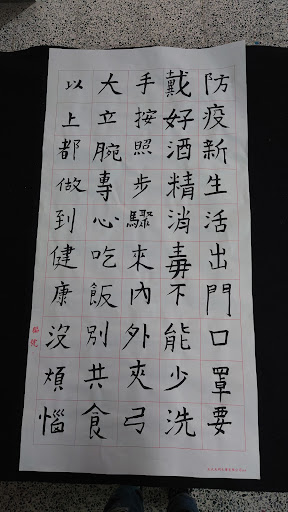 防疫新生活出門口罩要
戴好酒精消毒不能少洗
手按照步驟來內外夾弓
大立腕專心吃飯別共食
以上都做到健康沒煩惱